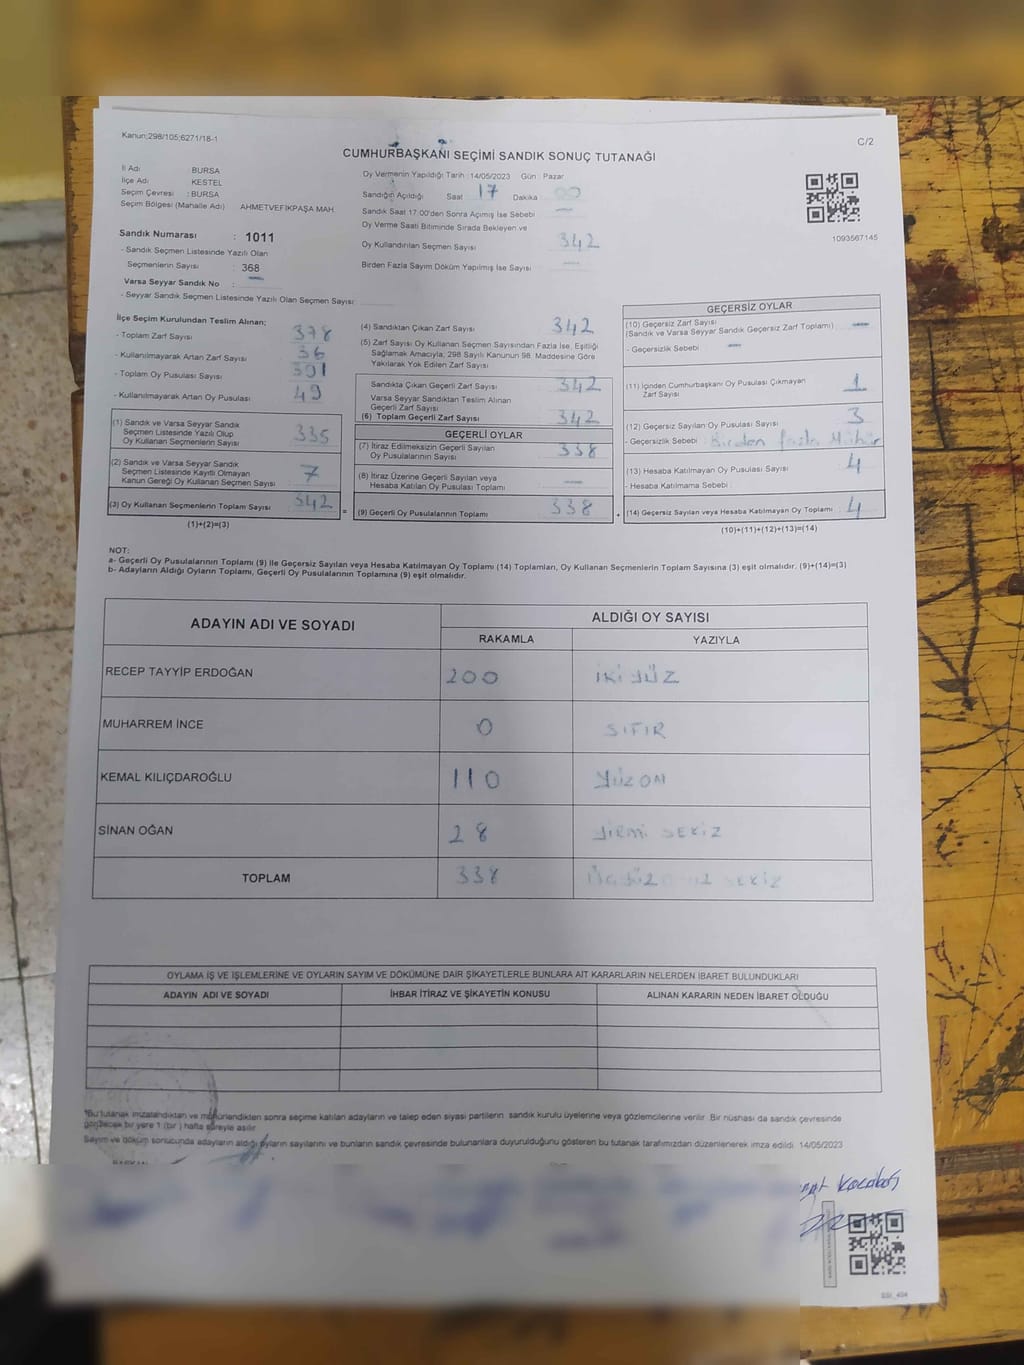 Kanun;298/105;6271/18-1
C/2
CUMHURBAŞKANI SEÇİMİ SANDIK SONUÇ TUTANAĞI
İl Adı : BURSA
İlçe Adı : KESTEL
Seçim Çevresi : BURSA
Seçim Bölgesi (Mahalle Adı) AHMETVEFİKPAŞA MAH
Oy Vermenin Yapıldığı Tarih :14/05/2023 Gün : Pazar
Sandığın Açıldığı Saat 17 Dakika 00
Sandık Saat 17:00'den Sonra Açımış İse Sebebi —
Oy Verme Saati Bitiminde Sırada Bekleyen ve
Oy Kullandırılan Seçmen Sayısı 342
Birden Fazla Sayım Döküm Yapılmış İse Sayısı —
1093567145
Sandık Numarası : 1011
- Sandık Seçmen Listesinde Yazılı Olan
Seçmenlerin Sayısı : 368
Varsa Seyyar Sandık No : —
- Seyyar Sandık Seçmen Listesinde Yazılı Olan Seçmen Sayısı
İlçe Seçim Kurulundan Teslim Alınan:
- Toplam Zarf Sayısı 378
- Kullanılmayarak Artan Zarf Sayısı 36
- Toplam Oy Pusulası Sayısı 391
- Kullanılmayarak Artan Oy Pusulası 49
(1) Sandık ve Varsa Seyyar Sandık
Seçmen Listesinde Yazılı Olup
Oy Kullanan Seçmenlerin Sayısı 335
(2) Sandık ve Varsa Seyyar Sandık
Seçmen Listesinde Kayıtlı Olmayan
Kanun Gereği Oy Kullanan Seçmen Sayısı 7
(3) Oy Kullanan Seçmenlerin Toplam Sayısı 342
(1)+(2)=(3)
(4) Sandıktan Çıkan Zarf Sayısı 342
(5) Zarf Sayısı Oy Kullanan Seçmen Sayısından Fazla İse, Eşitliği
Sağlamak Amacıyla; 298 Sayılı Kanunun 98. Maddesine Göre
Yakılarak Yok Edilen Zarf Sayısı
Sandıkta Çıkan Geçerli Zarf Sayısı 342
Varsa Seyyar Sandıktan Teslim Alınan
Geçerli Zarf Sayısı
(6) Toplam Geçerli Zarf Sayısı 342
GEÇERLİ OYLAR
(7) İtiraz Edilmeksizin Geçerli Sayılan
Oy Pusulalarının Sayısı 338
(8) İtiraz Üzerine Geçerli Sayılan veya
Hesaba Katılan Oy Pusulası Toplamı —
= (9) Geçerli Oy Pusulalarının Toplamı 338 +
GEÇERSİZ OYLAR
(10) Geçersiz Zarf Sayısı
(Sandık ve Varsa Seyyar Sandık Geçersiz Zarf Toplamı) —
- Geçersizlik Sebebi : —
(11) İçinden Cumhurbaşkanı Oy Pusulası Çıkmayan
Zarf Sayısı 1
(12) Geçersiz Sayılan Oy Pusulası Sayısı 3
- Geçersizlik Sebebi : Birden fazla Mühür
(13) Hesaba Katılmayan Oy Pusulası Sayısı 4
- Hesaba Katılmama Sebebi :
(14) Geçersiz Sayılan veya Hesaba Katılmayan Oy Toplamı : 4
(10)+(11)+(12)+(13)=(14)
NOT:
a- Geçerli Oy Pusulalarının Toplamı (9) İle Geçersiz Sayılan veya Hesaba Katılmayan Oy Toplamı (14) Toplamları, Oy Kullanan Seçmenlerin Toplam Sayısına (3) eşit olmalıdır. (9)+(14)=(3)
b- Adayların Aldığı Oyların Toplamı, Geçerli Oy Pusulalarının Toplamına (9) eşit olmalıdır.
ADAYIN ADI VE SOYADI ALDIĞI OY SAYISI
RAKAMLA YAZIYLA
RECEP TAYYİP ERDOĞAN 200 İKİ YÜZ
MUHARREM İNCE 0 SIFIR
KEMAL KILIÇDAROĞLU 110 YÜZON
SİNAN OĞAN 28 YİRMİ SEKİZ
TOPLAM 338 SEKİZ
OYLAMA İŞ VE İŞLEMLERİNE VE OYLARIN SAYIM VE DÖKÜMÜNE DAİR ŞİKAYETLERLE BUNLARA AİT KARARLARIN NELERDEN İBARET BULUNDUKLARI
ADAYIN ADI VE SOYADI İHBAR İTİRAZ VE ŞİKAYETİN KONUSU ALINAN KARARIN NEDEN İBARET OLDUĞU
*Bu tutanak imzalandıktan ve mühürlendikten sonra seçime katılan adayların ve talep eden siyasi partilerin sandık kurulu üyelerine veya gözlemcilerine verilir. Bir nüshası da sandık çevresinde
görülecek bir yere 1 (bir) hafta süreyle asılır.
Sayım ve döküm sonucunda adayların aldığı oyların sayılarını ve bunların sandık çevresinde bulunanlara duyurulduğunu gösteren bu tutanak tarafımızdan düzenlenerek imza edildi. 14/05/2023
BAŞKAN